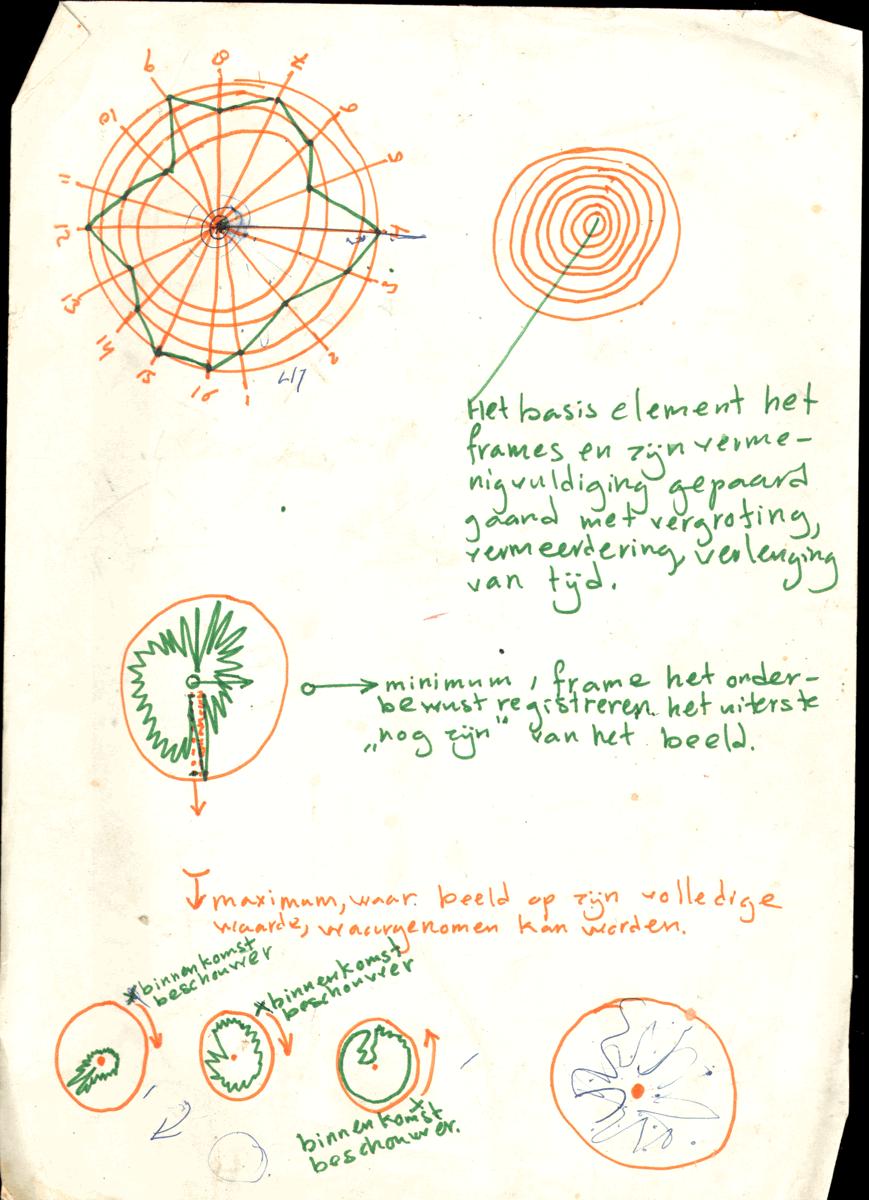 9
8
7
6
10
5
11
4
12
3
13
14
2
15
16
1
Het basis element het
frames en zijn verme-
nigvuldiging gepaard
gaand met vergroting,
vermeerdering, verlenging
van tijd.
minimum, frame het onder-
bewust registreren. het uiterste
„nog zijn" van het beeld.
maximum, waar beeld op zijn volledige
waarde, waargenomen kan worden.
x binnenkomst
beschouwer
x binnenkomst
beschouwer
binnenkomst
beschouwer.